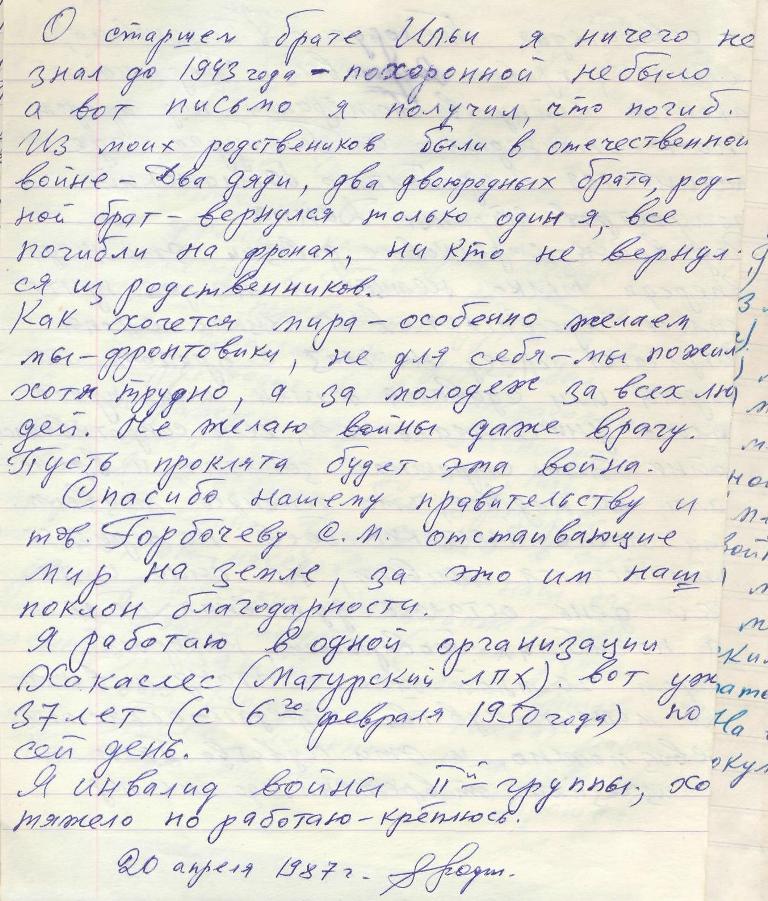 О старшем брате Ильи я ничего не
знал до 1943 года - похоронной небыло
а вот письмо я получил, что погиб.
Из моих родствеников были в отечественной
войне - Два дяди, два двоюродных брата, род-
ной брат - вернулся только один я, все
погибли на фронах, ни кто не вернул-
ся из родственников.
Как хочется мира - особенно желаем
мы - фронтовики, не для себя - мы пожил
хотя трудно, а за молодеж за всех лю
дей. Не желаю войны даже врагу.
Пусть проклята будет эта война.
Спасибо нашему правительству и
тов. Горбочеву С.М. отстаивающие
мир на земле, за это им наш
поклон благодарности.
Я работаю в одной организации
Хакаслес (Матурский лпх). вот уж
37 лет (с 6го февраля 1950 года) по
сей день.
Я инвалид войны IIй группы, хо
тяжело но работаю - креплюсь.
20 апреля 1987 г.